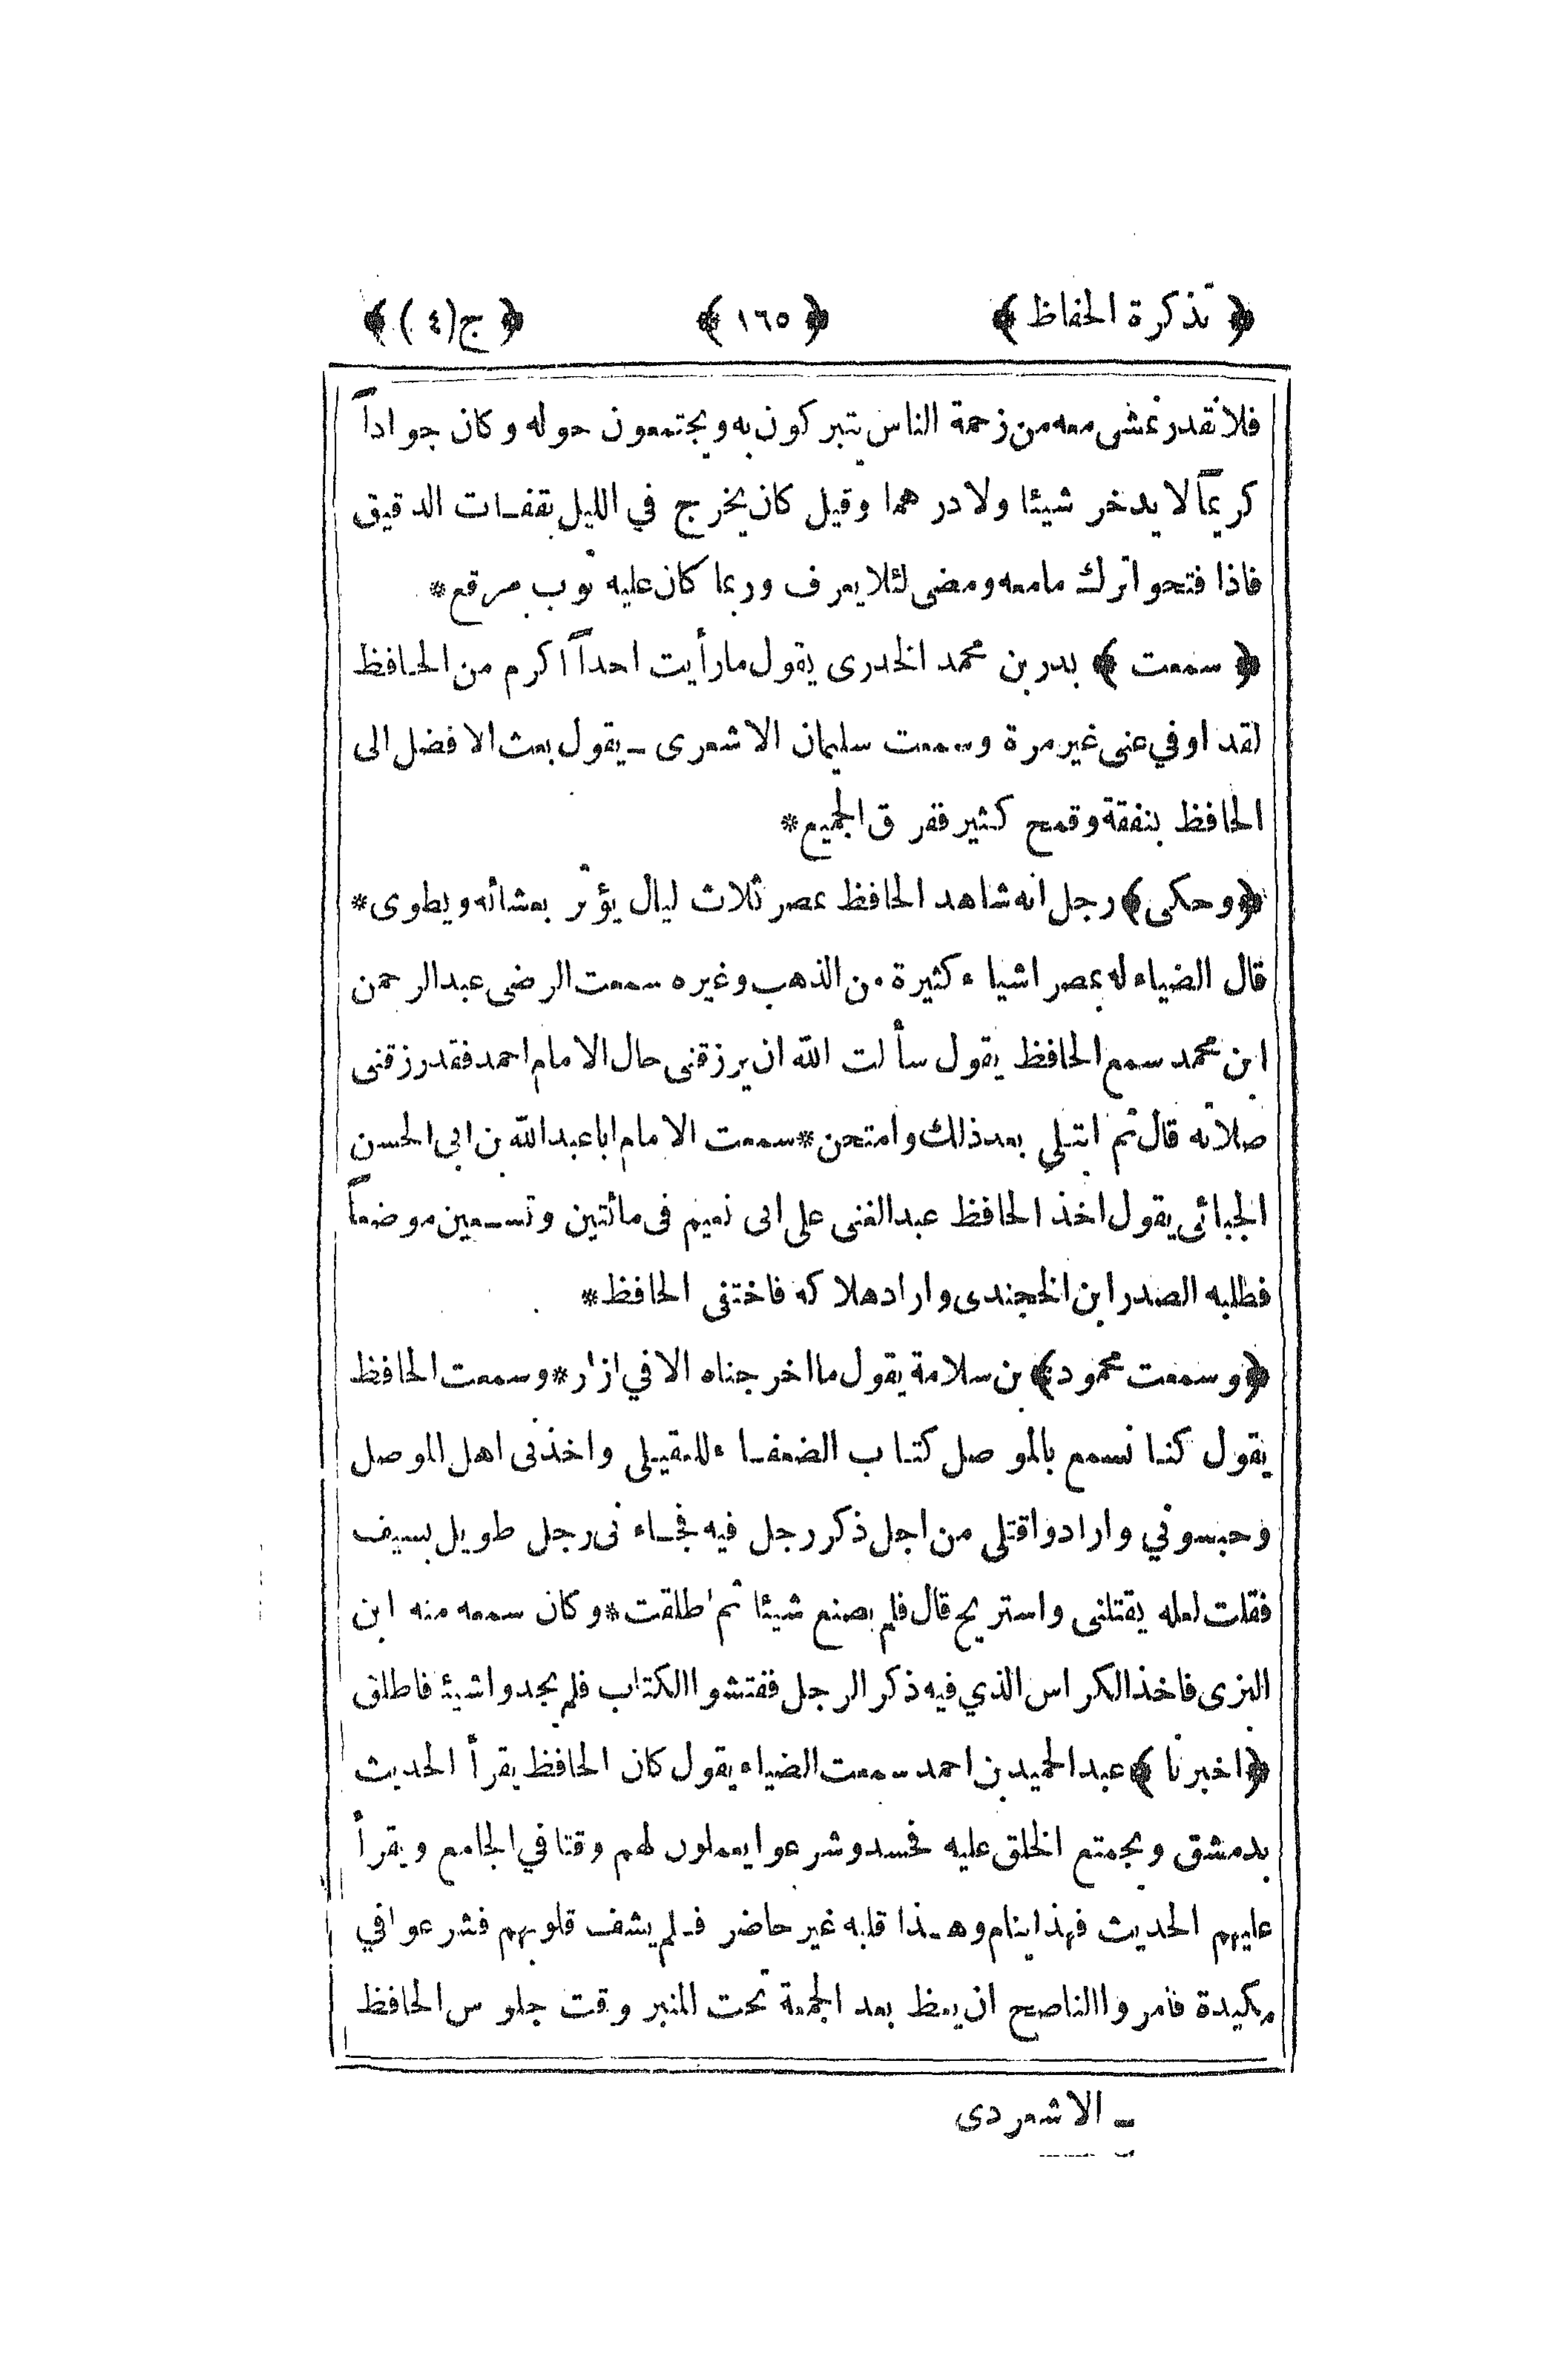 ﴿ تذكرة الحفاظ ﴾ ﴿ ١٦٥ ﴾ ﴿ ج(٤) ﴾
فلا نقدر نمشى معه من زحمة الناس يتبركون به ويجتمعون حوله وكان جواداً
كريماً لا يدخر شيئا ولا درهما وقيل كان يخرج في الليل بقفـات الدقيق
فاذا فتحوا ترك ما معه ومضى لئلا يعرف وربما كان عليه ثوب مرقع*
﴿ سمعت ﴾ بدر بن محمد الخدرى يقول ما رأيت احداً اكرم من الحافظ
لقد اوفي عنى غير مرة وسمعت سليمان الاشعرى ـ يقول بعث الافضل الى
الحافظ بنفقة وقمح كثير ففرق الجميع*
﴿وحكى﴾ رجل انه شاهد الحافظ بمصر ثلاث ليال يؤثر بعشائه ويطوى*
قال الضياء له بمصر اشياء كثيرة من الذهب وغيره سمعت الرضى عبد الرحمن
ابن محمد سمع الحافظ يقول سألت الله ان يرزقنى حال الامام احمد فقد رزقنى
صلاته قال ثم ابتلى بعد ذلك وامتحن* سمعت الامام ابا عبد الله بن ابى الحسن
الجبائى يقول اخذ الحافظ عبد الغنى على ابى نعيم فى مائتين وتسعين موضعاً
فطلبه الصدر ابن الخجندى واراد هلاكه فاختفى الحافظ*
﴿وسمعت محمود﴾ بن سلامة يقول ما اخرجناه الا في ازار* وسمعت الحافظ
يقول كنا نسمع بالموصل كتاب الضعفاء للعقيلى واخذنى اهل الموصل
وحبسوني وارادوا قتلى من اجل ذكر رجل فيه فجاءنى رجل طويل بسيف
فقلت لعله يقتلنى واستريح قال فلم يصنع شيئا ثم اطلقت* وكان سمعه منه ابن
البزى فاخذ الكراس الذي فيه ذكر الرجل ففتشوا الكتاب فلم يجدوا شيئا فاطلق
﴿اخبرنا ﴾ عبد الحميد بن احمد سمعت الضياء يقول كان الحافظ يقرأ الحديث
بدمشق ويجتمع الخلق عليه فحسد وشرعوا يعملون لهم وقتا في الجامع ويقرأ
عليهم الحديث فهذا ينام وهـذا قلبه غير حاضر فـلم يشف قلوبهم فشرعوا في
مكيدة فامروا الناصح ان يعظ بعد الجمعة تحت المنبر وقت جلوس الحافظ
ـ الاشعردى